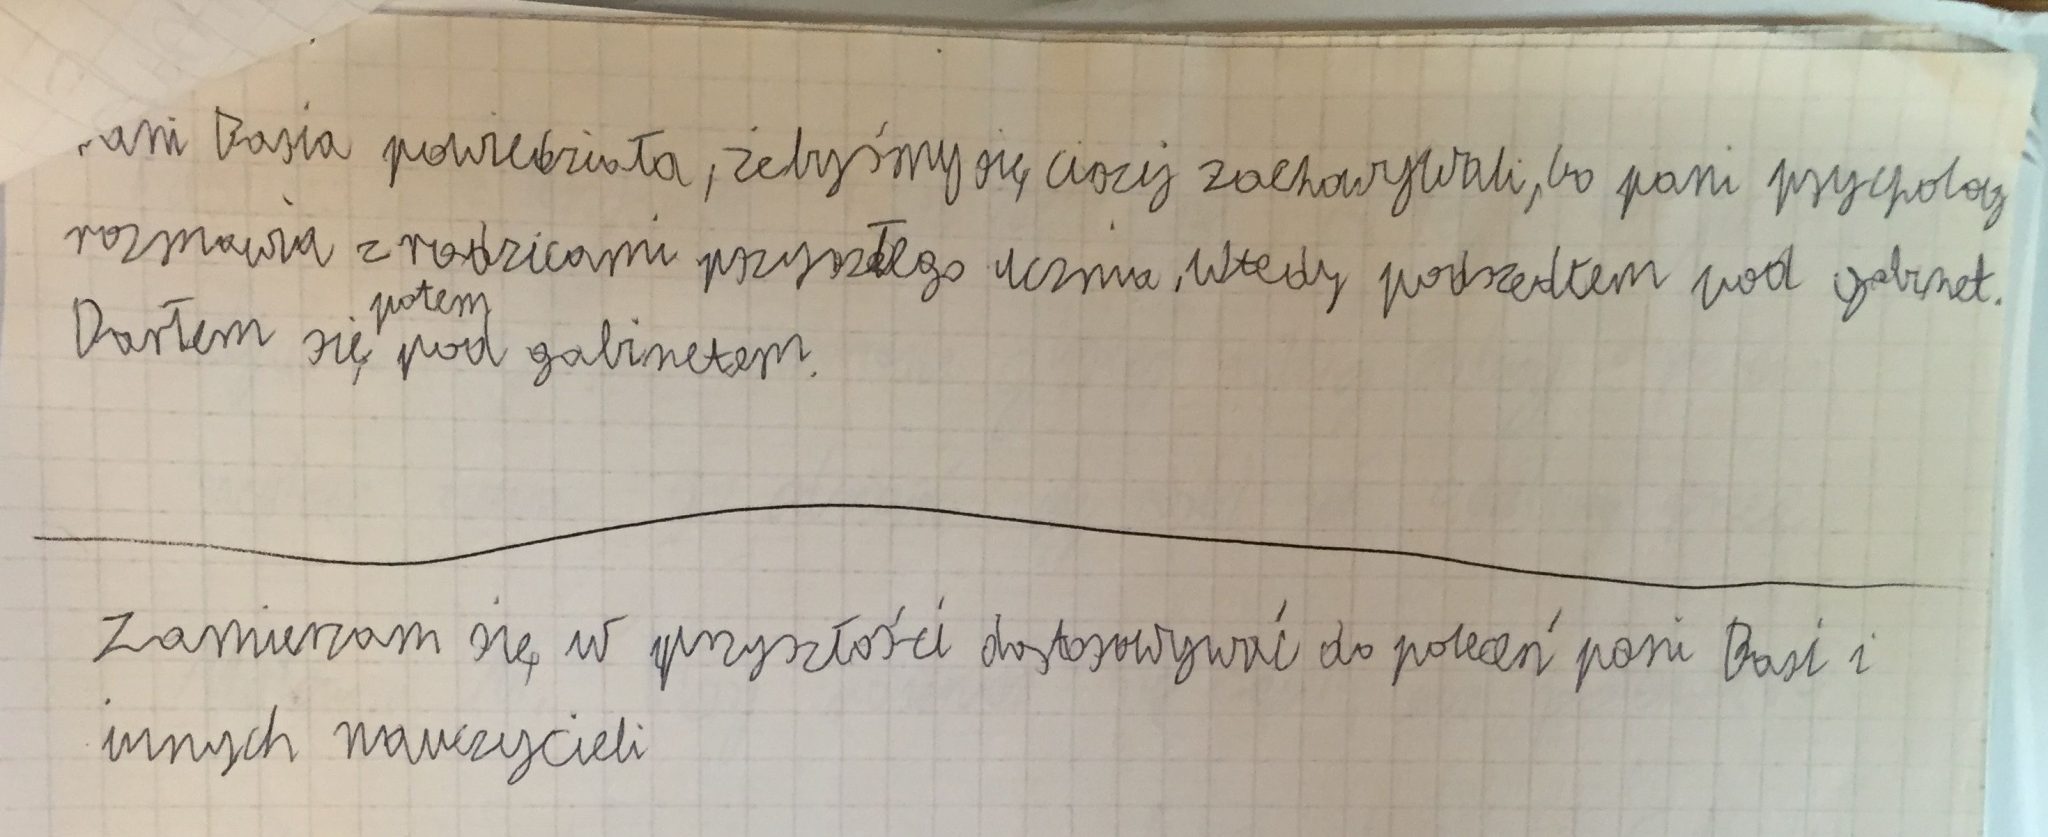 Pani Basia powiedziała, żebyśmy się ciszej zachowywali, bo pani psycholog
rozmawia z rodzicami przyszłego ucznia. Wtedy podszedłem pod gabinet.
Darłem się potem pod gabinetem.
Zamierzam się w przyszłości dostosowywać do poleceń pani Basi i
innych nauczycieli